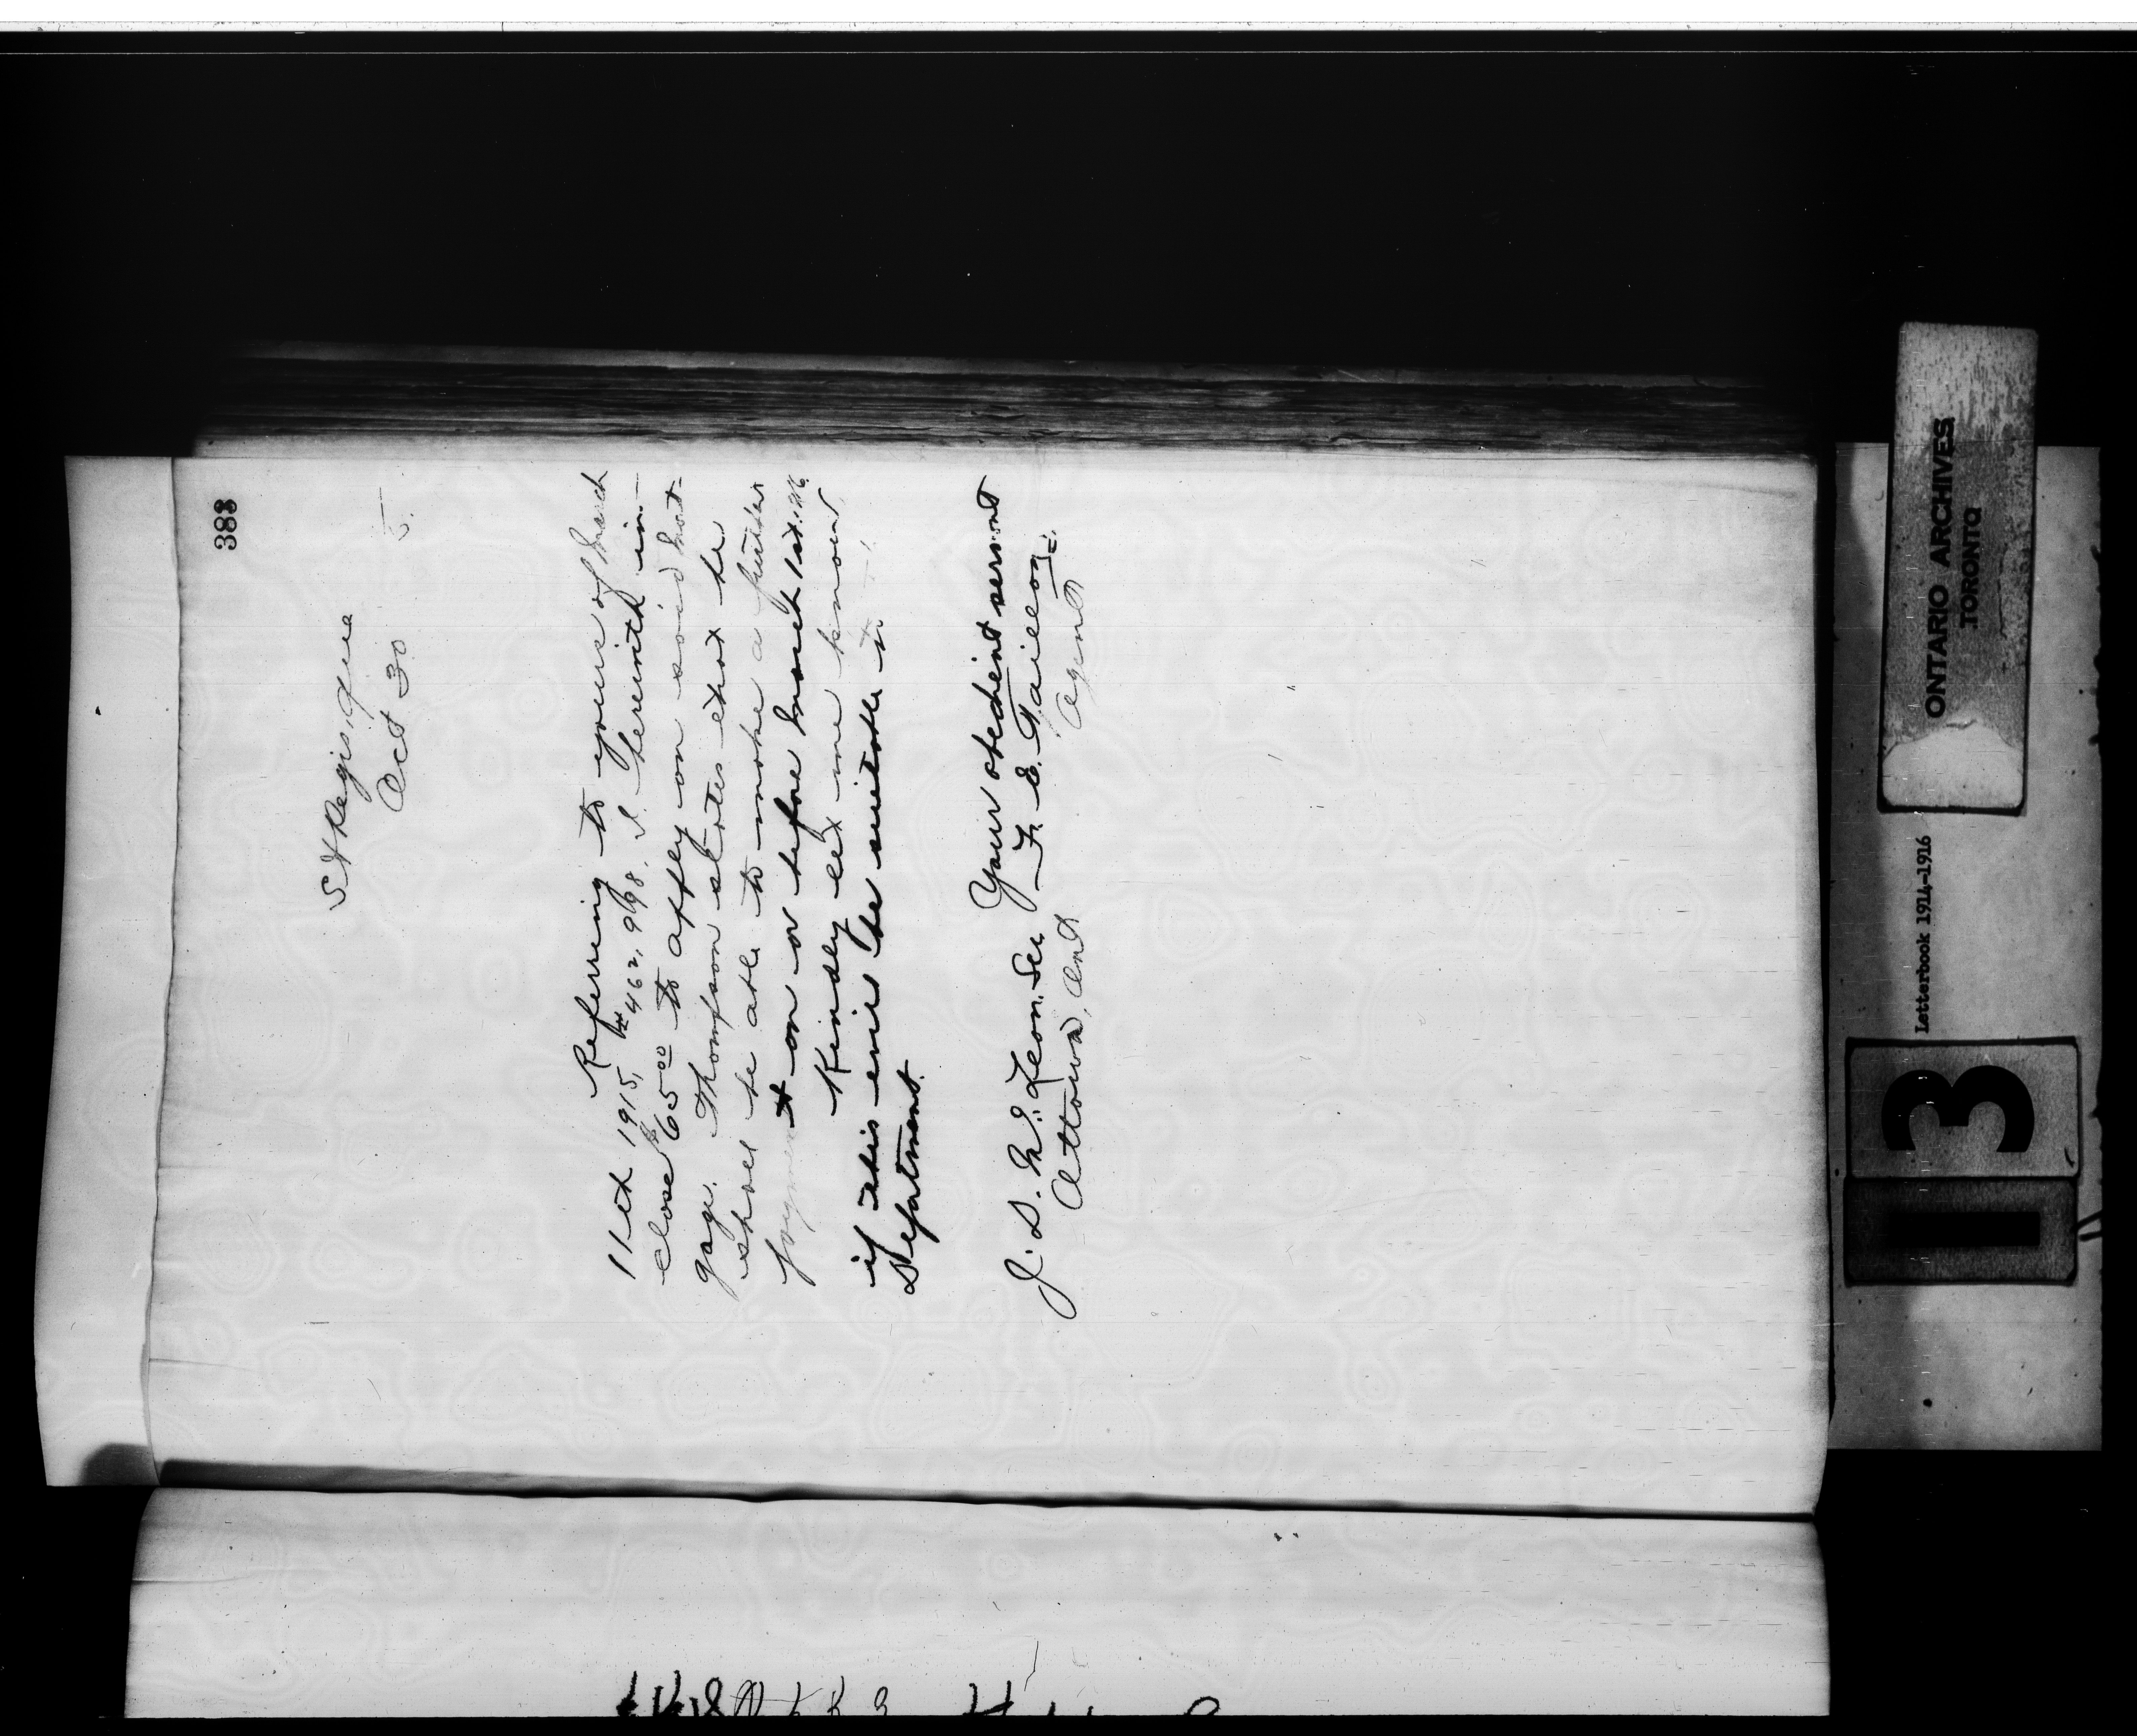 383
St Regis, Que
Oct 30 5.
Referring to yours of March
11th 1915, # 462,998. I herewith in-
close $65.00 to apply on said Mort-
gage. Thompson states that he
shall be able to make a further
payment on or before March 1st.
Kindly let me know
if this will be suitable to
Department.
Your obedient servant
J. D. McLean. Sec F. E. Taillon
Ottawa, Ont Agent
ONTARIO ARCHIVES
TORONTO
Letterbook 1914-1916
13